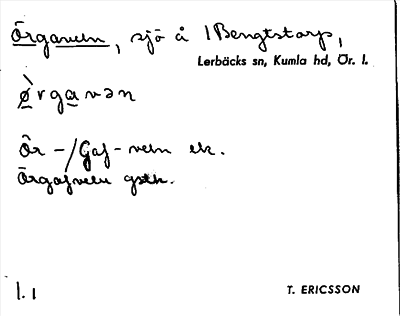 Örgaveln, sjö å 1 Bengtstorp,
Lerbäcks sn, Kumla hd, Ör. l.
ø̀rgavən
Ör -/Gaf- veln ek.
Örgafveln gstk.
1. 1
T. ERICSSON